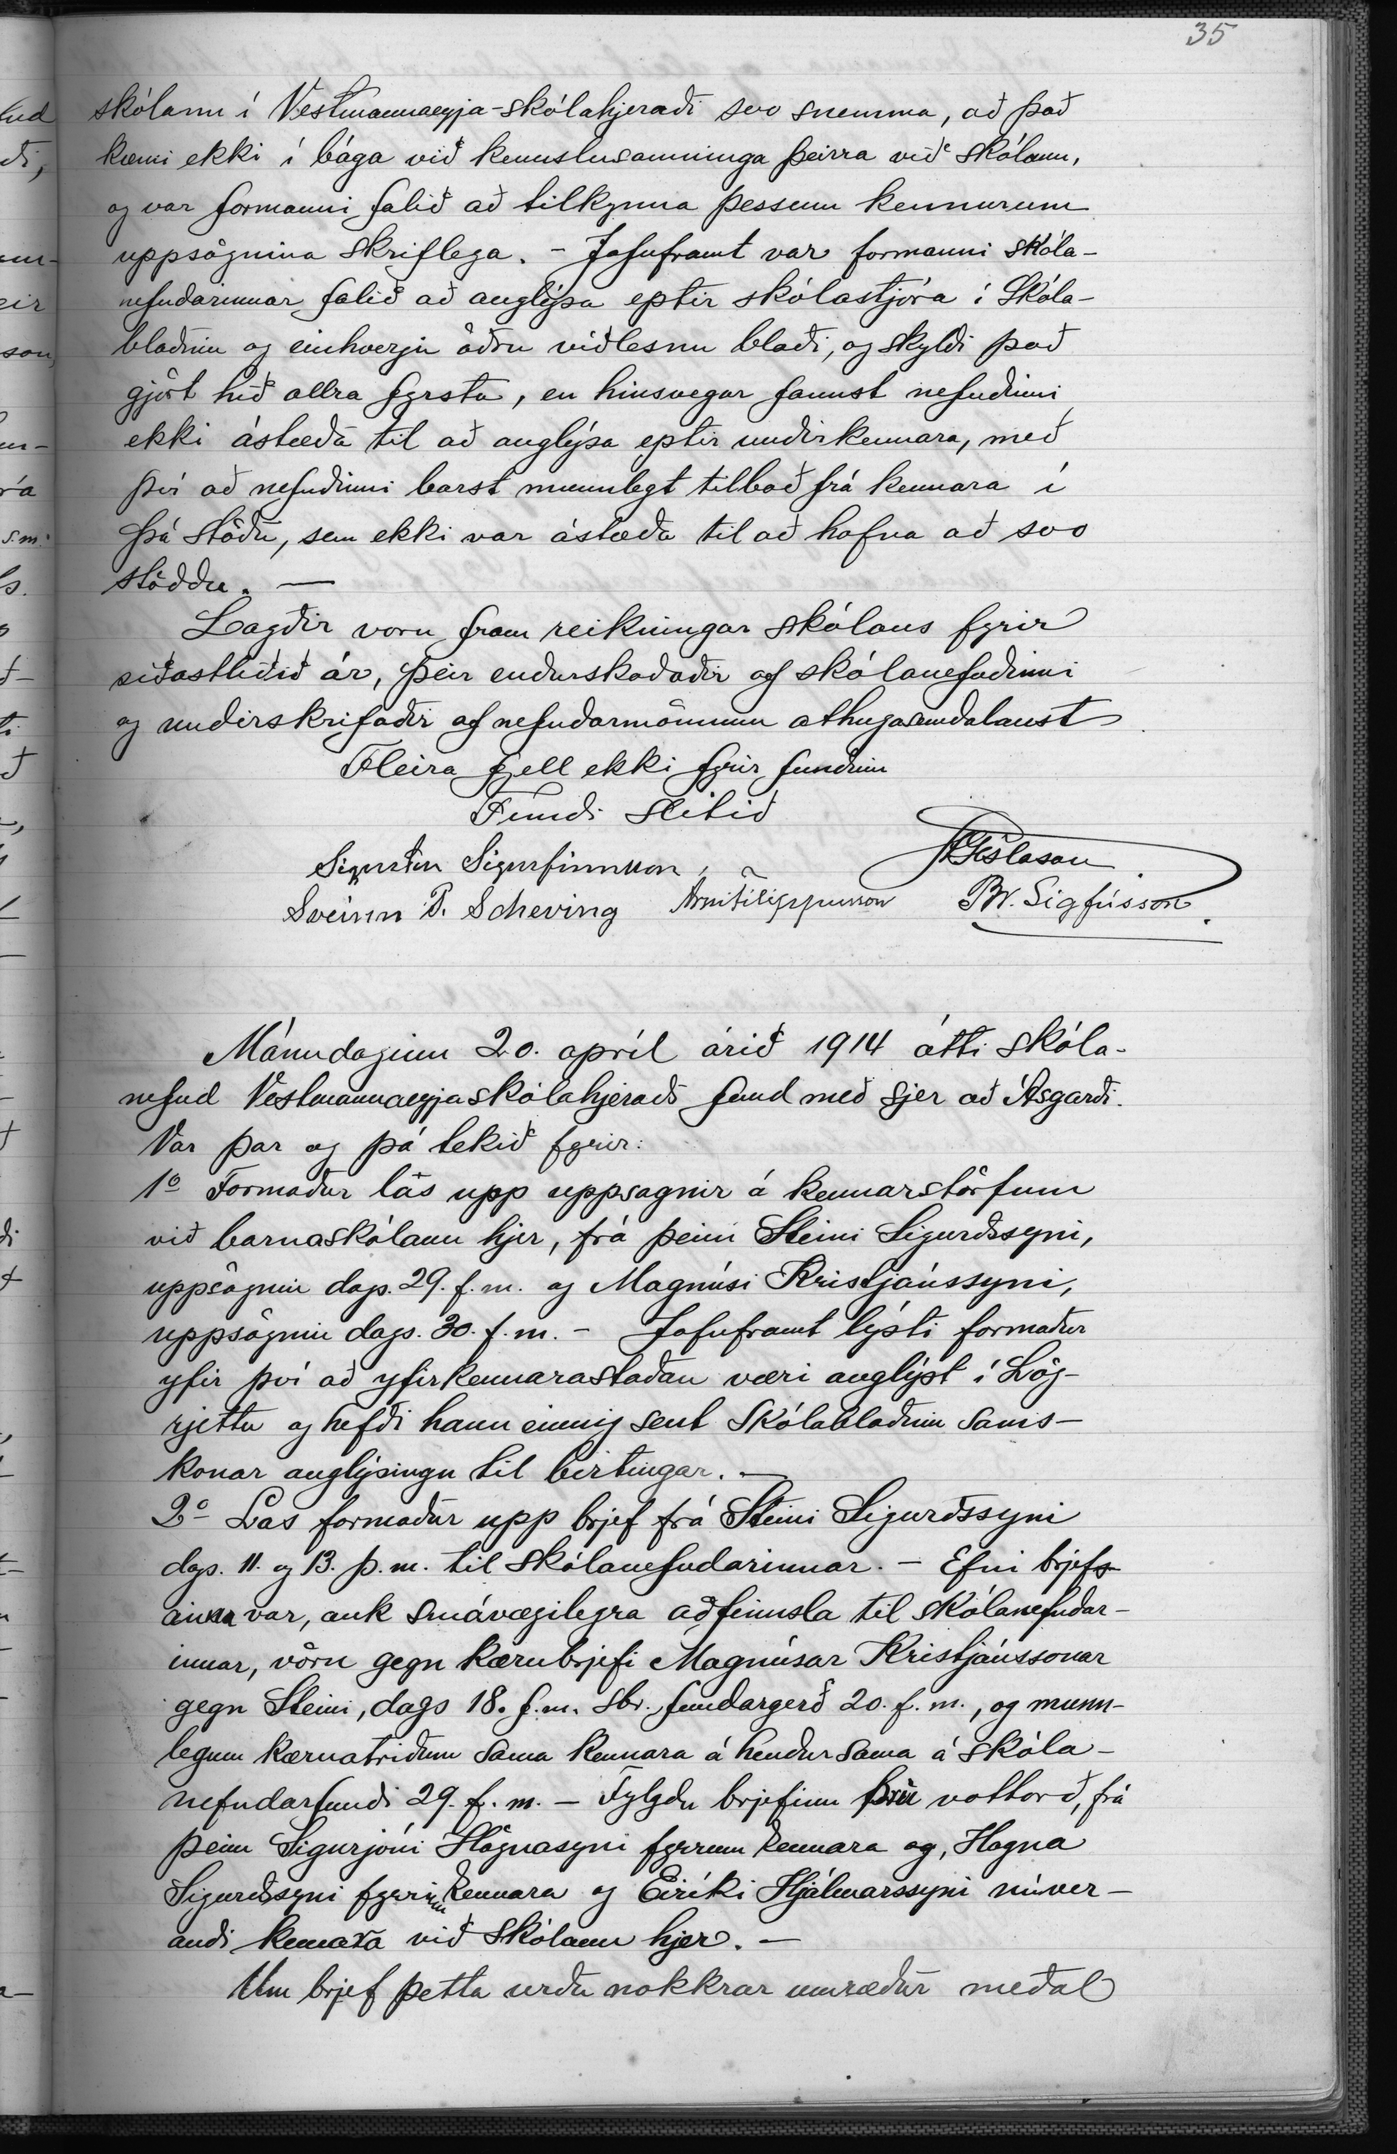 35
skólann í Vestmannaeyja-skólahjeraði svo snemma, að það
kæmi ekki í bága við kennslusamninga þeirra við skólann,
og var formanni falið að tilkynna þessum kennurum
uppsögnina skriflega. - Jafnframt var formanni skóla-
nefndarinnar falið að auglýsa eptir skólastjóra í Skóla-
blaðinu og einhverju öðru víðlesnu blaði, og skyldi það
gjört hið allra fyrsta, en hinsvegar fannst nefndinni
ekki ástæða til að auglýsa eptir undirkennara, með
því að nefndinni barst munnlegt tilboð frá kennara í
þá stöðu, sem ekki var ástæða til að hafna að svo
stöddu. —
Lagðir voru fram reikningar skólans fyrir
síðastliðið ár, þeir endurskoðaðir af skólanefndinni
og undirskrifaðir af nefndarmönnum athugasemdalaust
Fleira fjell ekki fyrir fundinn
Fundi slitið
Sigurður Sigurfinnsson. Gíslason
Sveinn P. Scheving Árni Filippusson Br. Sigfússon.
Mánudaginn 20. apríl árið 1914 átti skóla-
nefnd Vestmannaeyjaskólahjeraðs fund með sjer að Ásgarði.
Var þar og þá tekið fyrir:
1º Formaður las upp uppsagnir á kennarstörfum
við barnaskólann hjer, frá þeim Steini Sigurðssyni,
uppsögnin dags. 29. f.m. og Magnúsi Kristjánssyni,
uppsögnin dags. 30. f.m. - Jafnframt lýsti formaður
yfir því að yfirkennarastaðan væri auglýst í Lög-
rjettu og hefði hann einnig sent Skólablaðinu sams-
konar auglýsingu til birtingar. —
2º Las formaður upp brjef frá Steini Sigurðssyni
dags. 11. og 13. þ.m. til skólanefndarinnar. - Efni brjefs-
ins var, auk smávægilegra aðfinnsla til skólanefndar-
innar, vörn gegn kærubrjefi Magnúsar Kristjánssonar
gegn Steini, dags 18. f.m. sbr. fundargerð 20. f.m., og munn-
legum kæruatriðum sama kennara á hendur sama á skóla-
nefndarfundi 29. f.m. - Fylgdu brjefinu þrjú vottorð, frá
þeim Sigurjóni Högnasyni fyrrum kennara og, Högna
Sigurðssyni fyrrum kennara og Eiríki Hjálmarssyni núver-
andi kennara við skólann hjer. —
Um brjef þetta urðu nokkrar umræður meðal